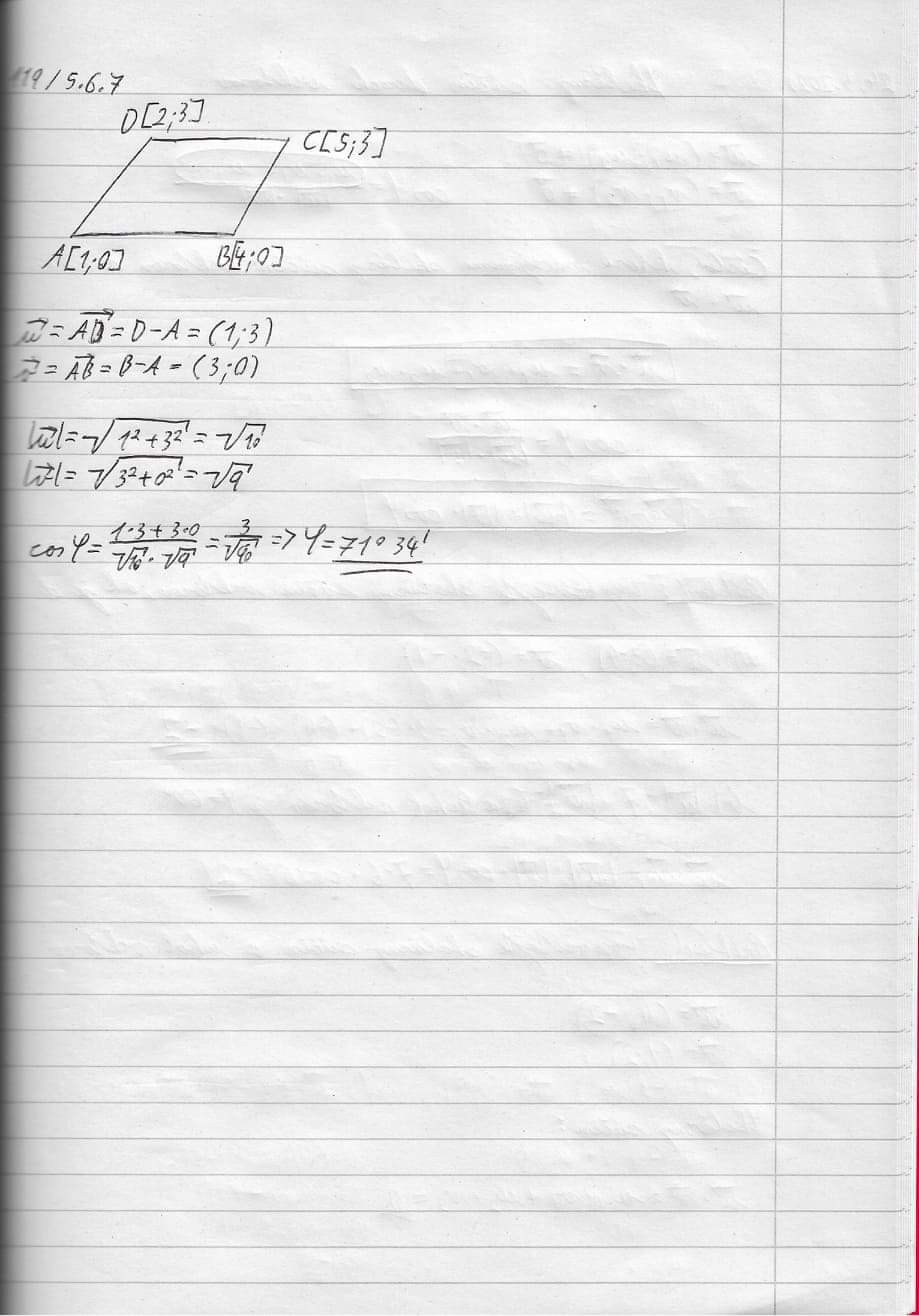 119/5.6.7
D[2;3]
C[5;3]
A[1;0]
B[4;0]
u⃗ = AD⃗ = D-A = (1;3)
v⃗ = AB⃗ = B-A = (3;0)
|u⃗| = √(1²+3²) = √10
|v⃗| = √(3²+0²) = √9
cos φ = (1·3+3·0)/(√10·√9) = 3/√90 => φ = 71° 34'